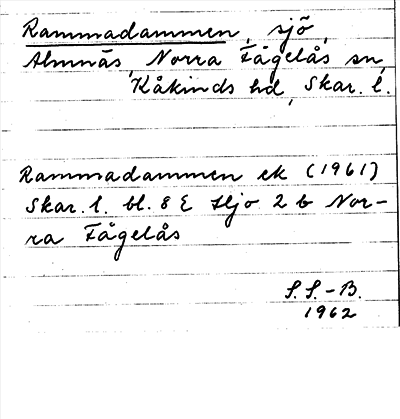 Rammadammen, sjö,
Almnäs, Norra Fågelås sn,
Kåkinds hd, Skar. l.
Rammadammen ek (1961)
Skar. l. bl. 8 E Hjo 2 b Nor-
ra Fågelås
S. S.-B.
1962